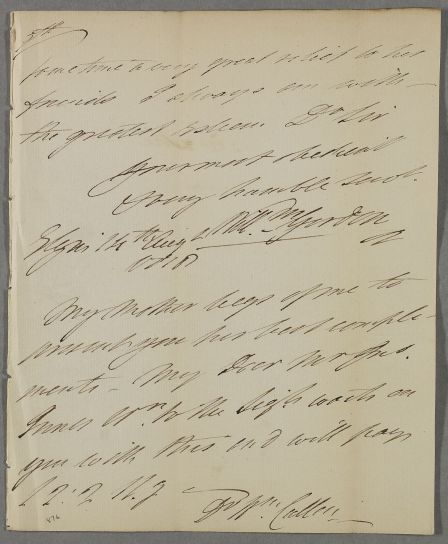 5th
some time a very great relief to her
friends I always am with
the greatest Esteem Dr Sir
your most obedient
& very humble Servt.
Elgin 14th Augt Will Gordon
My Mother begs of me to
present you her best comple-
ments - My Dear
Innes to the waits on
you with this and will pay
£2: 2
Dr Wm. Cullen
876